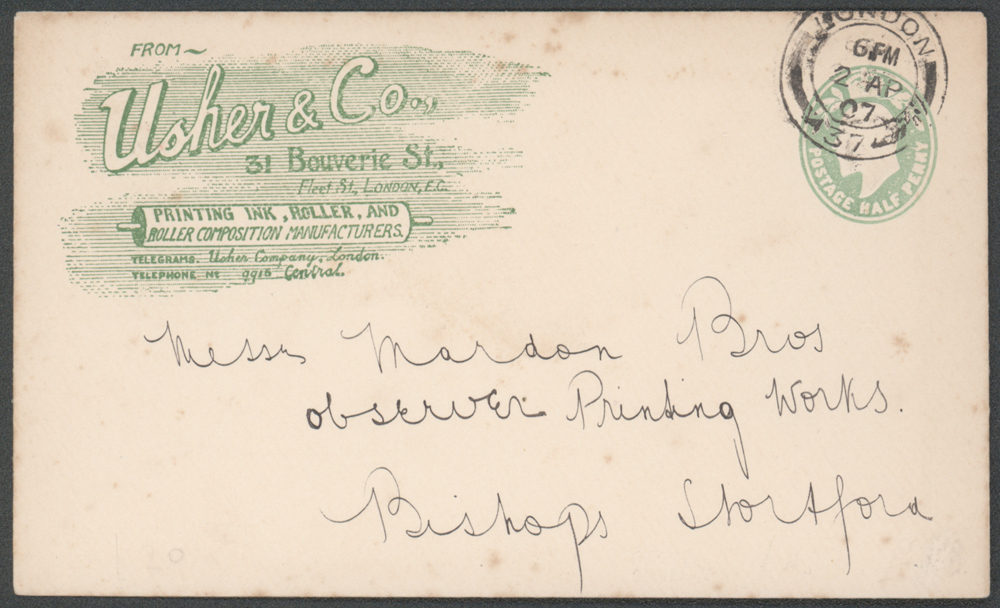 FROM ~
Usher & Co.,
31 Bouverie St.,
Fleet St., LONDON, E.C.
PRINTING INK, ROLLER, AND
ROLLER COMPOSITION MANUFACTURERS.
TELEGRAMS. Usher Company, London.
TELEPHONE No 9915 Central.
LONDON
6 PM
2 AP
07
37
POSTAGE HALF PENNY
Messrs Mardon Bros
Observer Printing Works.
Bishops Stortford